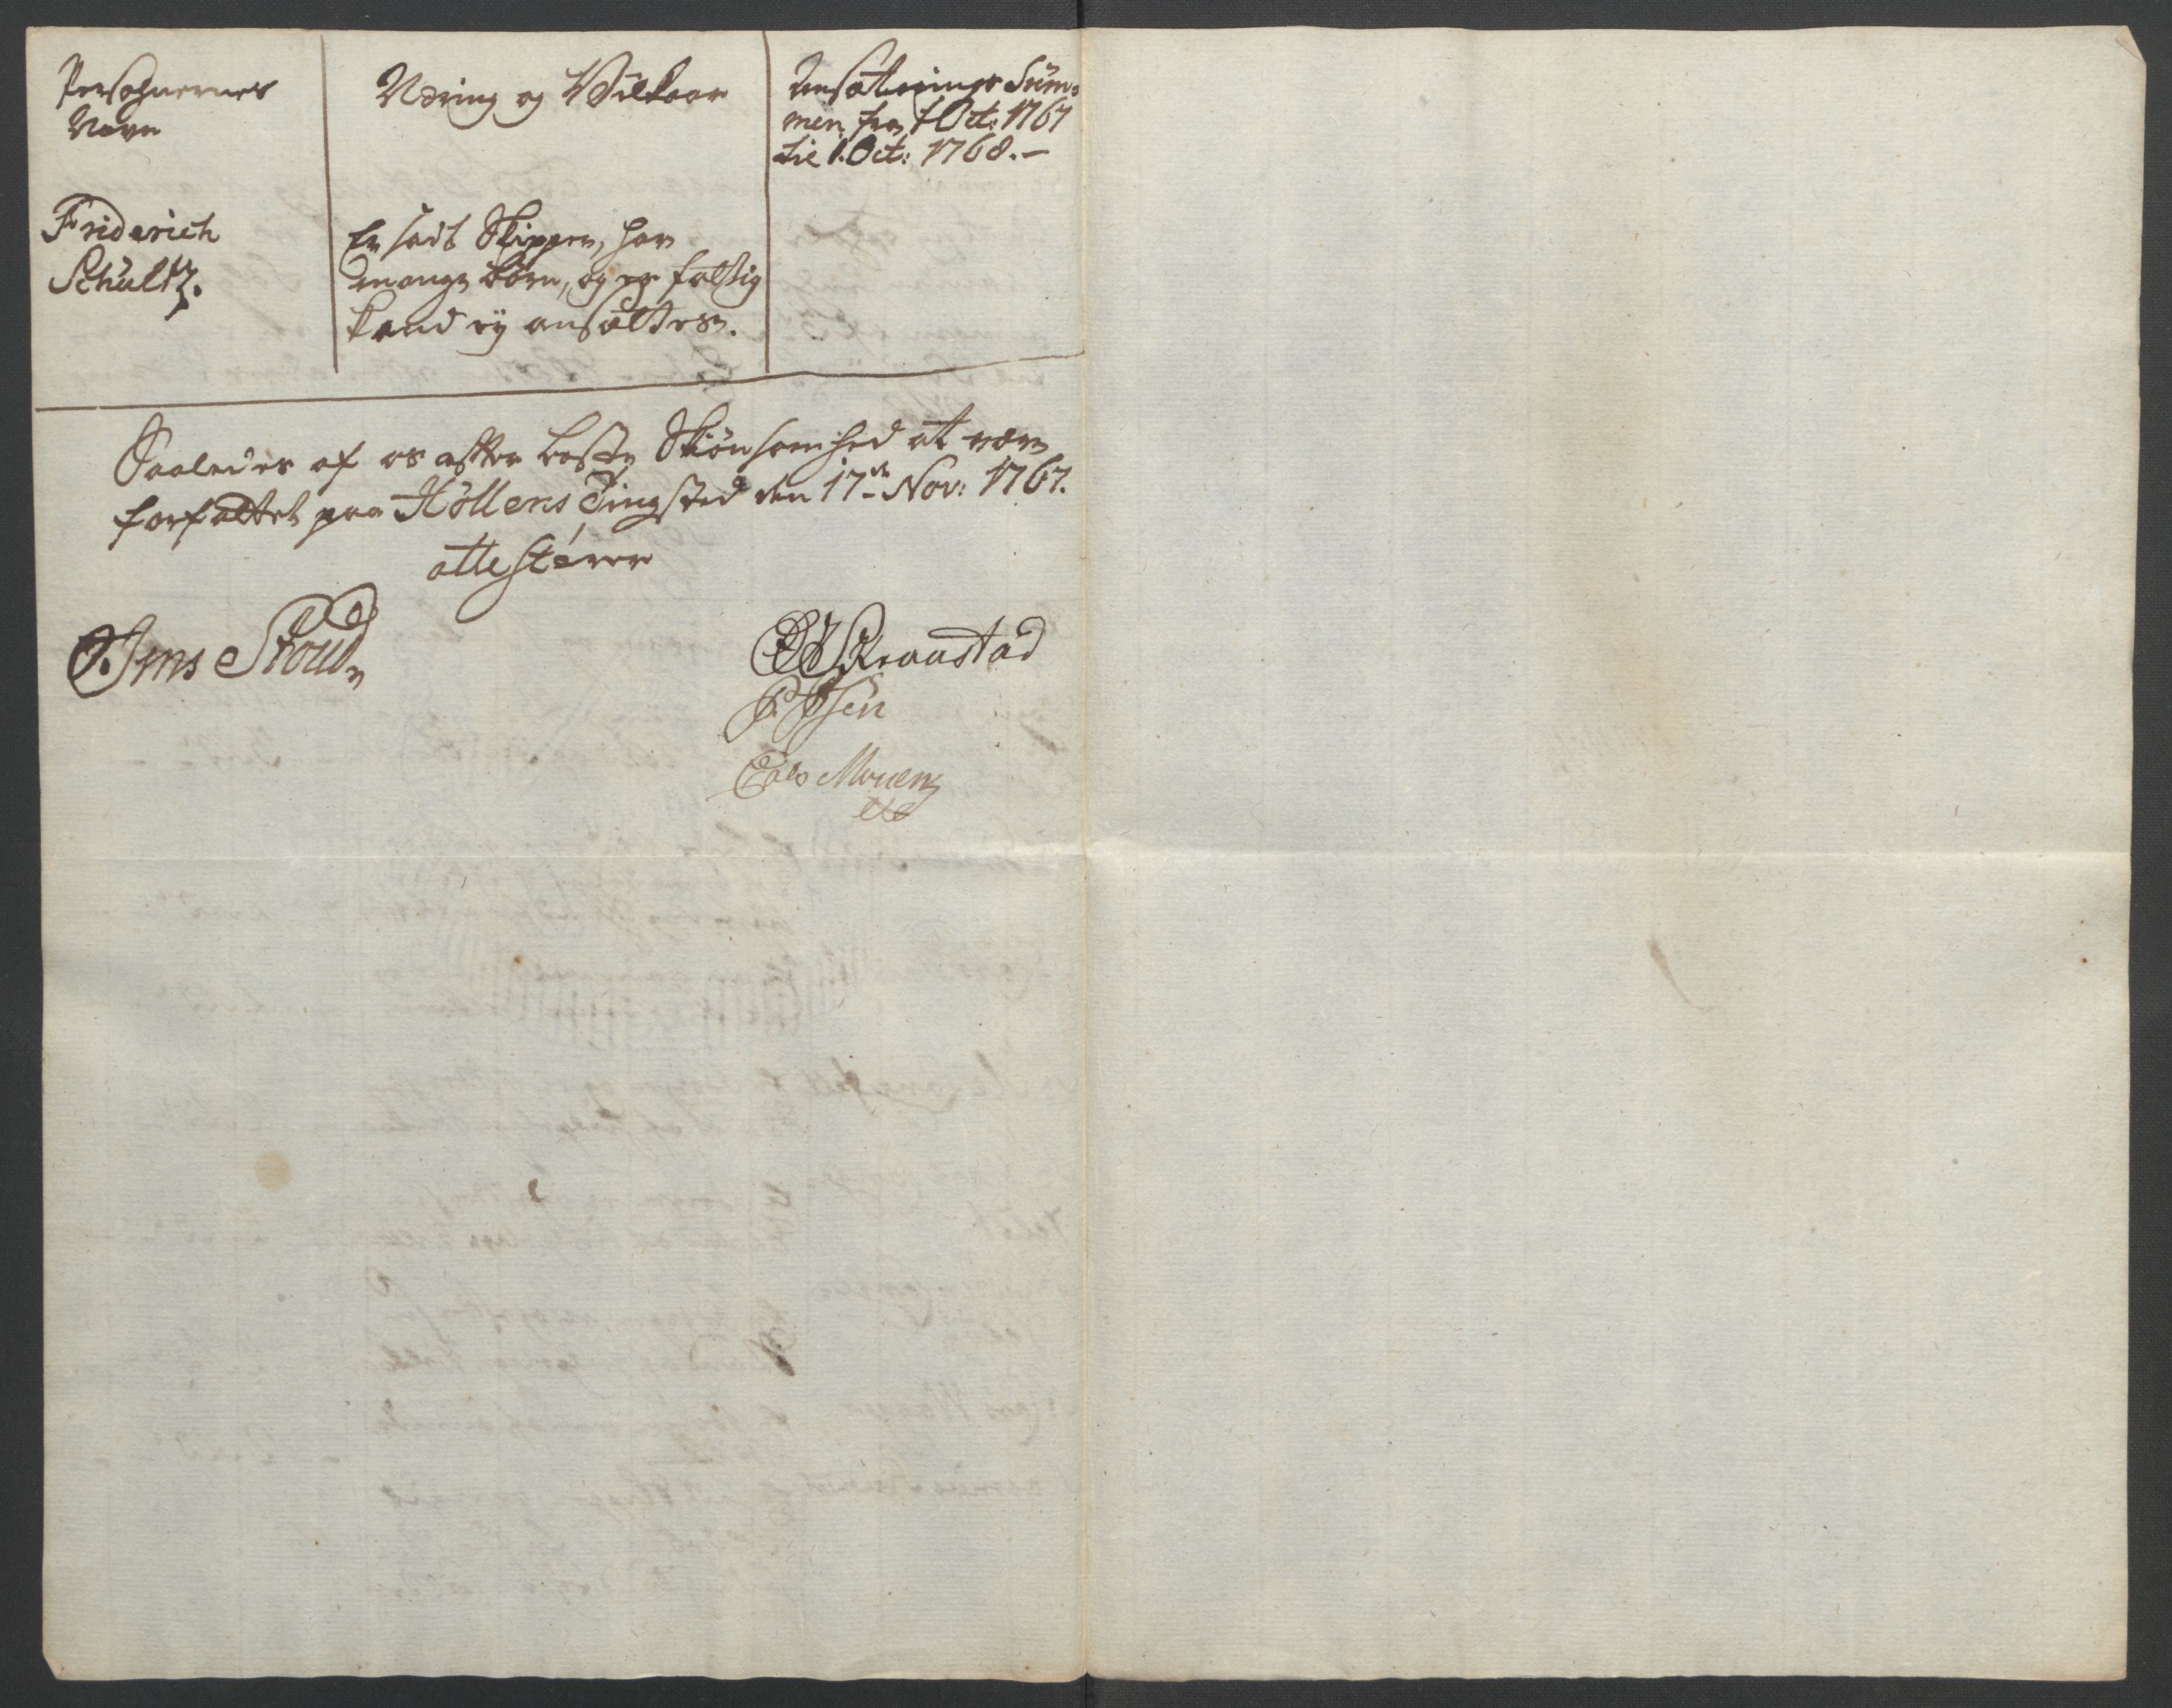 Persohnernes
Navn
Næring og Vilkaar
Ansætnings Sum-
men fra 1 Oct: 1767
til 1. Oct: 1768. -
Friderich
Schultz.
En Skipper, har
mange Børn, og er fattig
kand ej ansættes.
Saaledes af os efter beste Skiønsomhed at være
forfattet paa Höllens Tingsted den 17de Nov: 1767.
attesterer
Jens